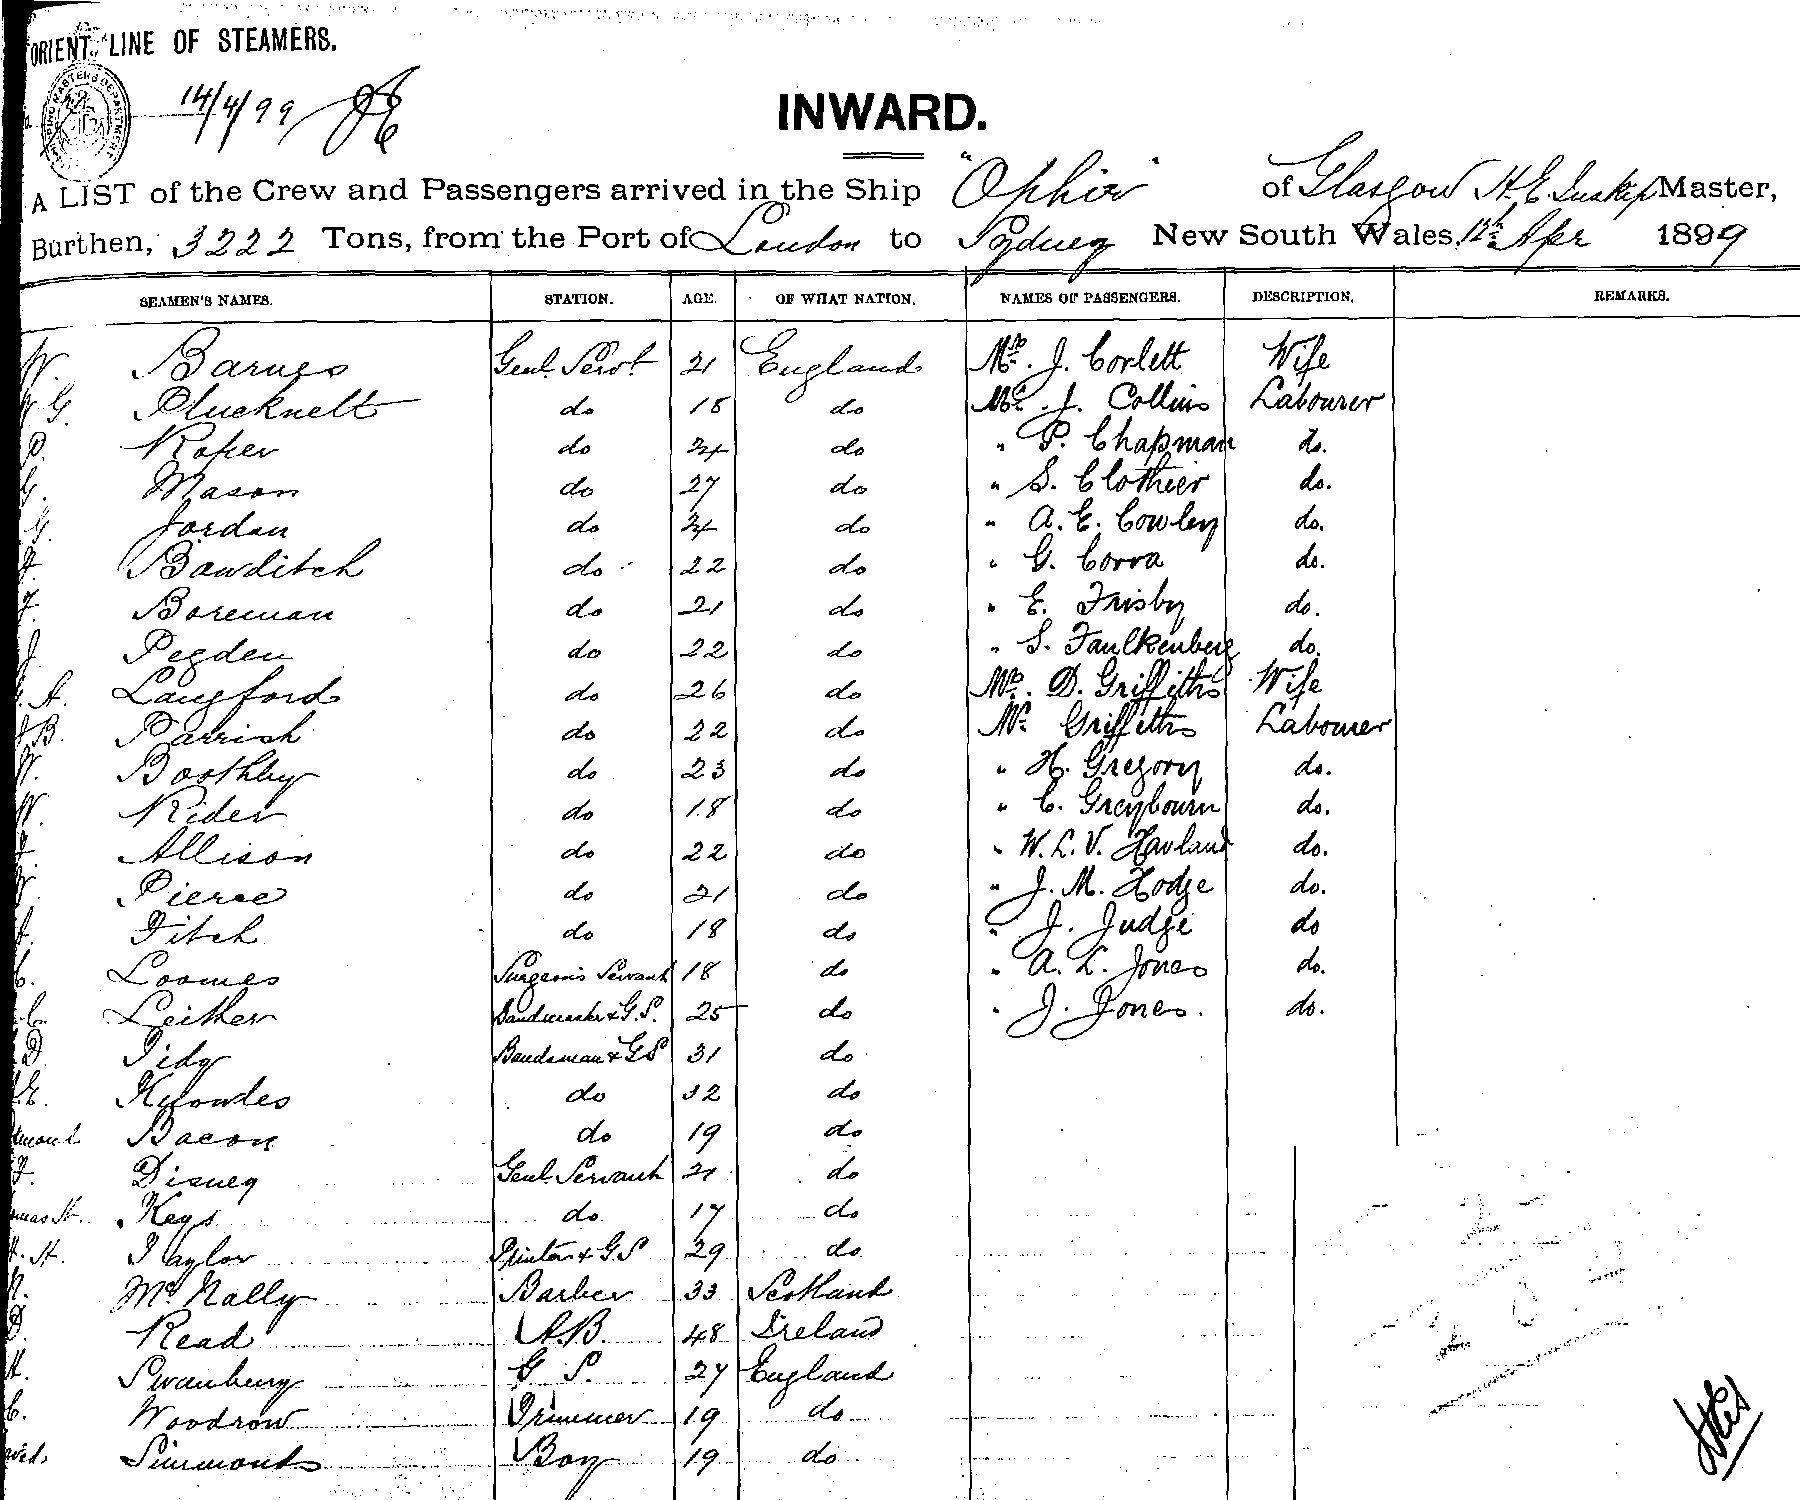 ORIENT LINE OF STEAMERS.
14/4/99
INWARD.
A LIST of the Crew and Passengers arrived in the Ship "Ophir" of Glasgow H. E. Inskip Master,
Burthen, 3222 Tons, from the Port of London to Sydney New South Wales, 12th Apr 1899
SEAMEN'S NAMES. STATION. AGE. OF WHAT NATION. NAMES OF PASSENGERS. DESCRIPTION. REMARKS.
W. Barnes Genl. Servt. 21 England Mrs. J. Corlett Wife
G. Plucknett do 18 do Mr. J. Collins Labourer
P. Roper do 24 do " P. Chapman do.
G. Mason do 27 do " S. Clothier do.
G. Jordan do 24 do " A. E. Cowley do.
Bowditch do 22 do " G. Corra do.
F. Boreman do 21 do " E. Frisby do.
J. Pegden do 22 do " S. Faulkenberg do.
A. Langford do 26 do Mrs. D. Griffiths Wife
B. Parrish do 22 do Mr. Griffiths Labourer
W. Boothby do 23 do " H. Gregory do.
W. Rider do 18 do " C. Greybourn do.
Allison do 22 do " W. L. V. Havland do.
Pierce do 21 do " J. M. Hodge do.
Fitch do 18 do " J. Judge do
C. Loomes Surgeon's Servant 18 do " A. L. Jones do.
C. Leither Bandmaster & G.S. 25 do " J. Jones. do.
D. Tidy Bandsman & GS 31 do
E. Knowdes do 32 do
Bacon do 19 do
F. Disney Genl. Servant 21 do
Keys do 17 do
H. Taylor Printer & G.S 29 do
McNally Barber 33 Scotland
D. Read A.B. 48 Ireland
H. Swanbury G S. 27 England
C. Woodrow Trimmer 19 do
Simmonds Boy 19 do